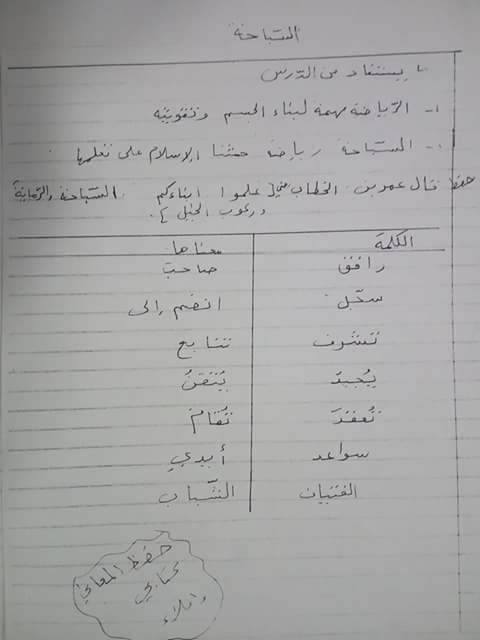 السباحة
ما يستفاد من الدرس
١- الرياضة مهمة لبناء الجسم وتقويته
٢- السباحة رياضة حثنا الإسلام على تعلمها
حفظ قال عمر بن الخطاب علموا ابناءكم السباحة والرماية
وركوب الخيل
الكلمة معناها
رافق صاحب
سجّل انضم إلى
تشرف تتابع
يُجيدُ يُتقنُ
تُعقدَ تُقام
سواعد أيدي
الفتيان الشّباب
حفظ المعاني
كتابي
واملاء